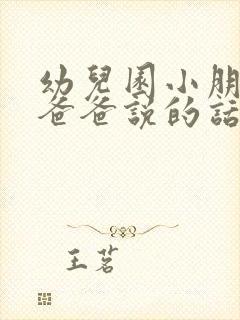 幼兒園小朋
爸爸說的話
王茗